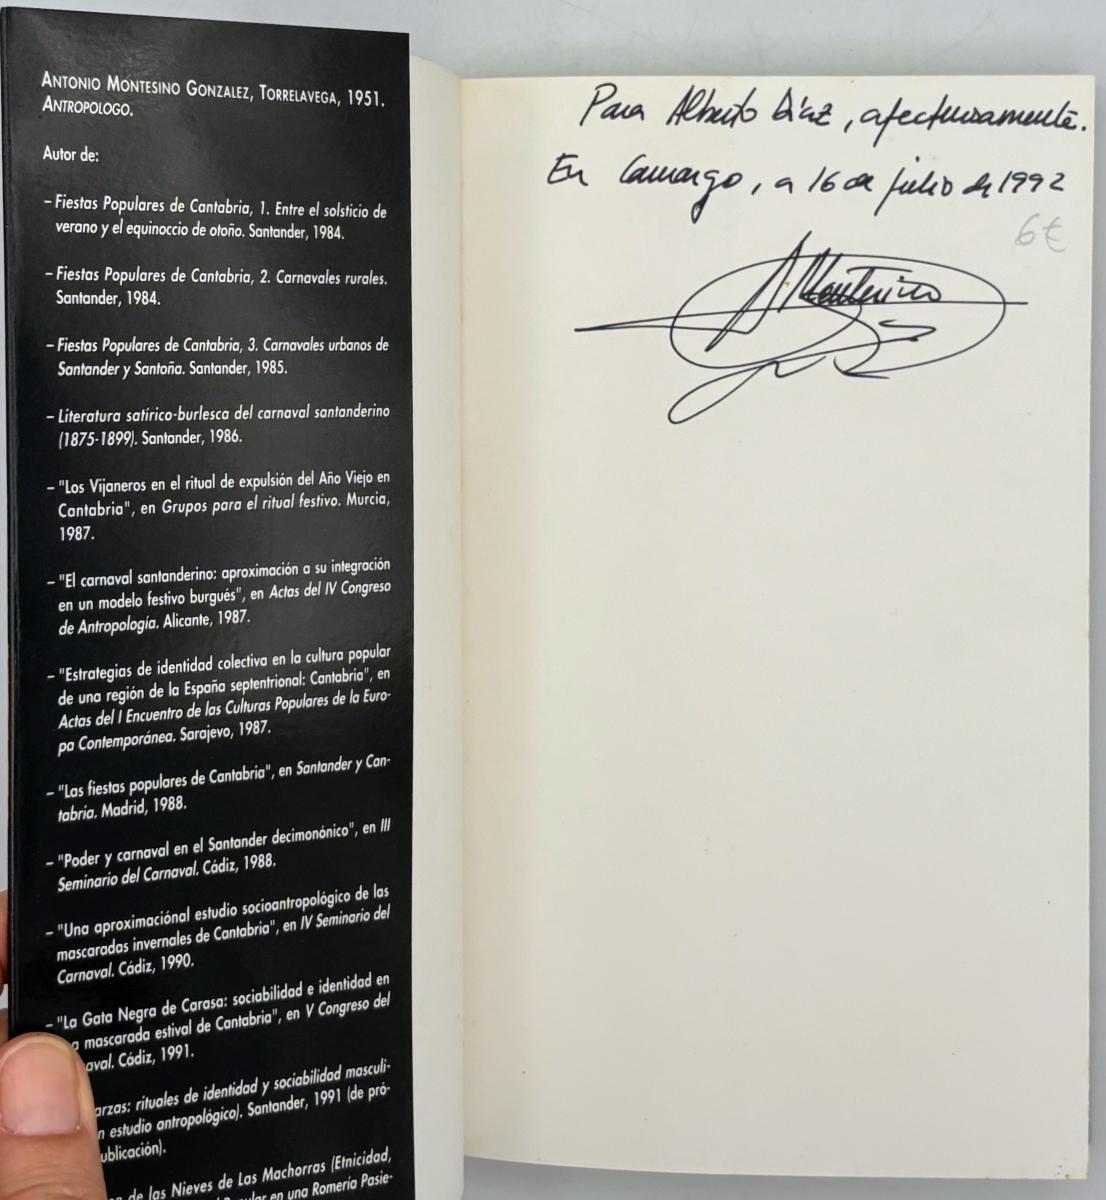 ANTONIO MONTESINO GONZALEZ, TORRELAVEGA, 1951.
ANTROPOLOGO.
Autor de:
– Fiestas Populares de Cantabria, 1. Entre el solsticio de
verano y el equinoccio de otoño. Santander, 1984.
– Fiestas Populares de Cantabria, 2. Carnavales rurales.
Santander, 1984.
– Fiestas Populares de Cantabria, 3. Carnavales urbanos de
Santander y Santoña. Santander, 1985.
– Literatura satírico-burlesca del carnaval santanderino
(1875-1899). Santander, 1986.
– "Los Vijaneros en el ritual de expulsión del Año Viejo en
Cantabria", en Grupos para el ritual festivo. Murcia,
1987.
– "El carnaval santanderino: aproximación a su integración
en un modelo festivo burgués", en Actas del IV Congreso
de Antropología. Alicante, 1987.
– "Estrategias de identidad colectiva en la cultura popular
de una región de la España septentrional: Cantabria", en
Actas del I Encuentro de las Culturas Populares de la Euro-
pa Contemporánea. Sarajevo, 1987.
– "Las fiestas populares de Cantabria", en Santander y Can-
tabria. Madrid, 1988.
– "Poder y carnaval en el Santander decimonónico", en III
Seminario del Carnaval. Cádiz, 1988.
– "Una aproximaciónal estudio socioantropológico de las
mascaradas invernales de Cantabria", en IV Seminario del
Carnaval. Cádiz, 1990.
– "La Gata Negra de Carasa: sociabilidad e identidad en
a mascarada estival de Cantabria", en V Congreso del
aval. Cádiz, 1991.
arzas: rituales de identidad y sociabilidad masculi-
n estudio antropológico). Santander, 1991 (de pró-
ublicación).
de las Nieves de Las Machorras (Etnicidad,
en una Romería Pasie-
Para Alberto Díaz, afectuosamente.
En Camargo, a 16 de julio de 1992
6€
A Montesino